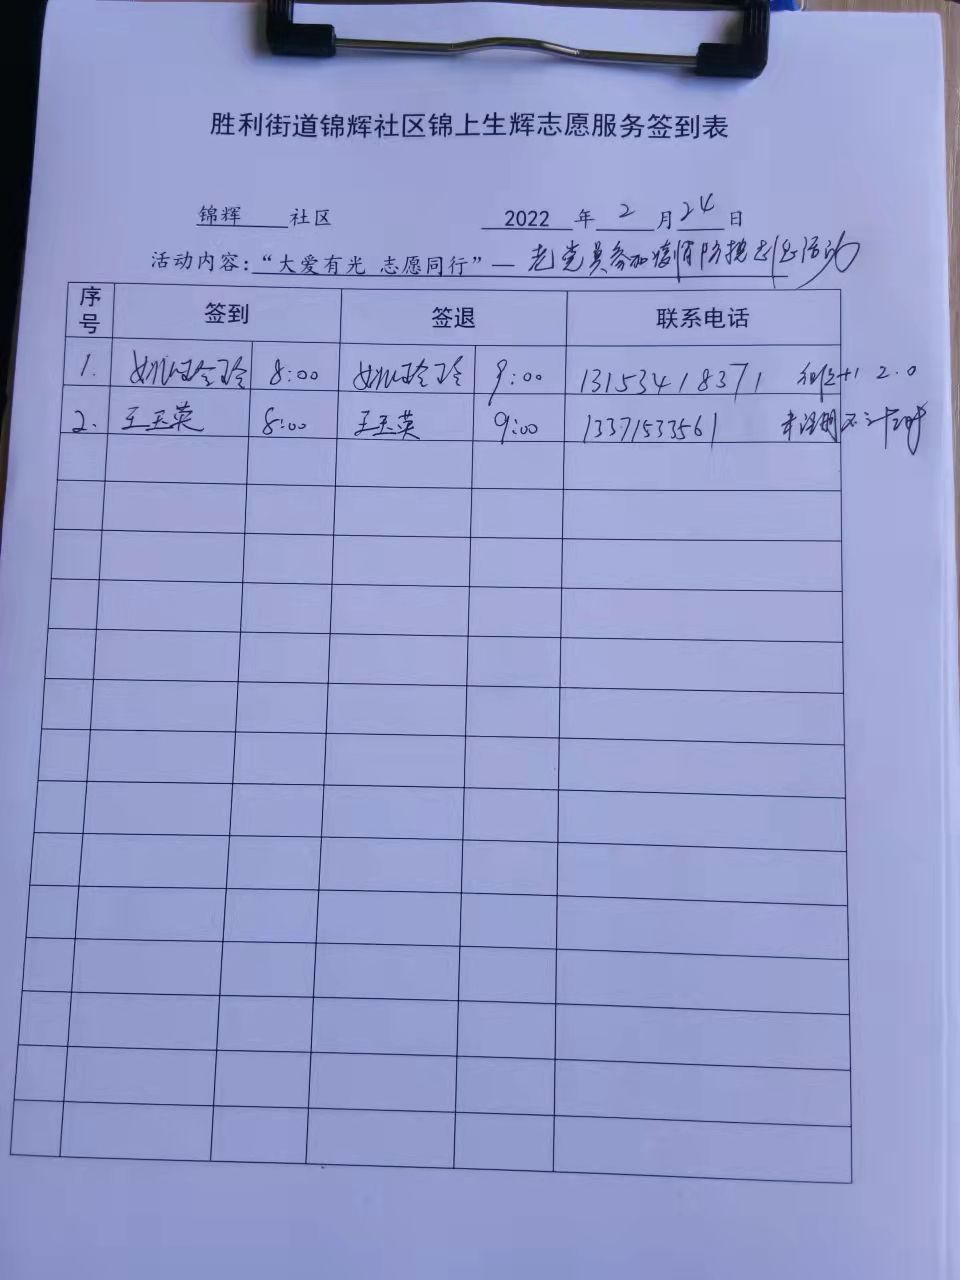 胜利街道锦辉社区锦上生辉志愿服务签到表
锦辉 社区 2022 年 2 月 24 日
活动内容:“大爱有光 志愿同行”— 老党员参加疫情防控志愿活动
序号 签到 签退 联系电话
1. 姚玲玲 8:00 姚玲玲 9:00 13153418371 2.0
2. 王玉英 8:00 王玉英 9:00 13371533561 未注册不计时